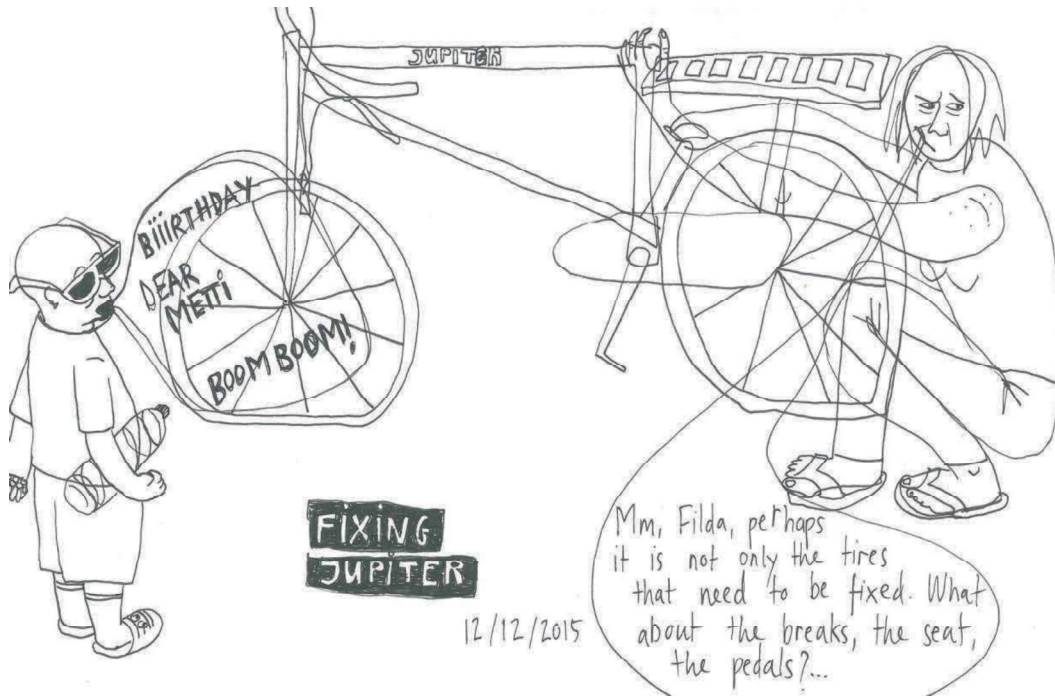 JUPITER
BiiiRTHDAY
DEAR
METTi
BOOM BOOM!
FiXiNG
JUPiTER
12/12/2015
Mm, Filda, perhaps
it is not only the tires
that need to be fixed. What
about the breaks, the seat,
the pedals?...